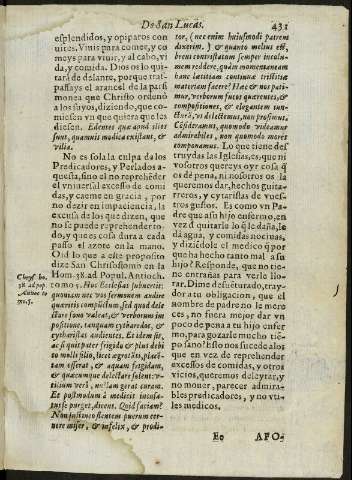 De San Lucas. 431
esplendidos, y opiparos con
uites. Viuis para comer, y co
meys para viuir, y al cabo, vi
da, y comida. Dios os lo qui-
tarà de delante, porque tras-
passays el arancel de la par
monea que Christo ordenò
a los suyos, diziendo, que co-
miessen vn que quiera que les
diessen. Edentes quæ apud illos
sunt, quamuis modica existant, &
vilia.
No es sola la culpa de los
Predicadores, y Perlados a-
questa, sino el no reprehẽder
el vniuersal excesso de comi
das, y caeme en gracia, por
no dezir en impaciencia, la
escusa de los que dizen, que
no se puede reprehender to-
do, y que es cosa dura a cada
passo el azote en la mano.
Oid lo que a este proposito
dize San Chrisostomo en la
Hom. 38. ad Popul. Antioch.
tomo 5. Nos Ecclesias subuertit:
quoniam nec vos sermonem audire
quæritis compuctum, sed quod dele
ctare sono valeat, & verborum im
positione, tanquam cytharœdos, &
cytharistas audientes. Et idem sit,
ac si quis pater frigida & plus debi
to molli filio, licet ægrotis, placẽ-
tam offerat, & aquam frigidam,
& quæcumque delectare solent: v-
tilium verò, nullam gerat curam.
Et postmodum à medicis incusa-
tus se purget, dicens. Quid faciam?
Non sustineo flentem puerum cer-
nere miser, & infelix, & prodi-
Chrys. ho.
38. ad pop.
Antioc. to
mo. 5.
tor, (nec enim huiusmodi patrem
dixerim.) & quanto melius est,
breui contristatum semper incolu-
mem reddere, quàm momentaneam
hanc lætitiam continuæ tristitiæ
materiam facere? Hæc & nos pati-
mur, verborum fucos quærentes, &
compositiones, & elegantem iun-
cturã, vt delectemus, non prosimus.
Cõsideramus, quomodo videamur
admirabiles, non quomodo mores
componamus. Lo que tiene des
truydas las Iglesias, es, que ni
vosotros quereys oyr cosa q̃
os dè pena, ni nosotros os la
queremos dar, hechos guita-
rreros, y cytaristas de vues-
tros gustos. Es como vn Pa-
dre que a su hijo enfermo, en
vez d̃ quitarle lo q̃ le daña, le
dà agua, y comidas nociuas,
y diziẽdole el medico q̃ por
que ha hecho tanto mal a su
hijo? Responde, que no tie-
ne entrañas para verle llo-
rar. Dime desuẽturado, tray-
dor a tu obligacion, que el
nombre de padre no le mere
ces, no fuera mejor dar vn
poco de pena a tu hijo enfer
mo, para gozarle mucho tiẽ-
po sano? Esto nos sucede a los
que en vez de reprehender
excessos de comidas, y otros
vicios, queremos deleytar, y
no mouer, parecer admira-
bles predicadores, y no vti-
les medicos.
Ee APO-